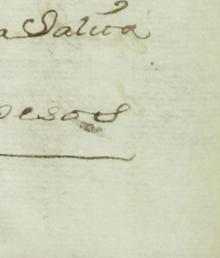 a Saliva
pesos